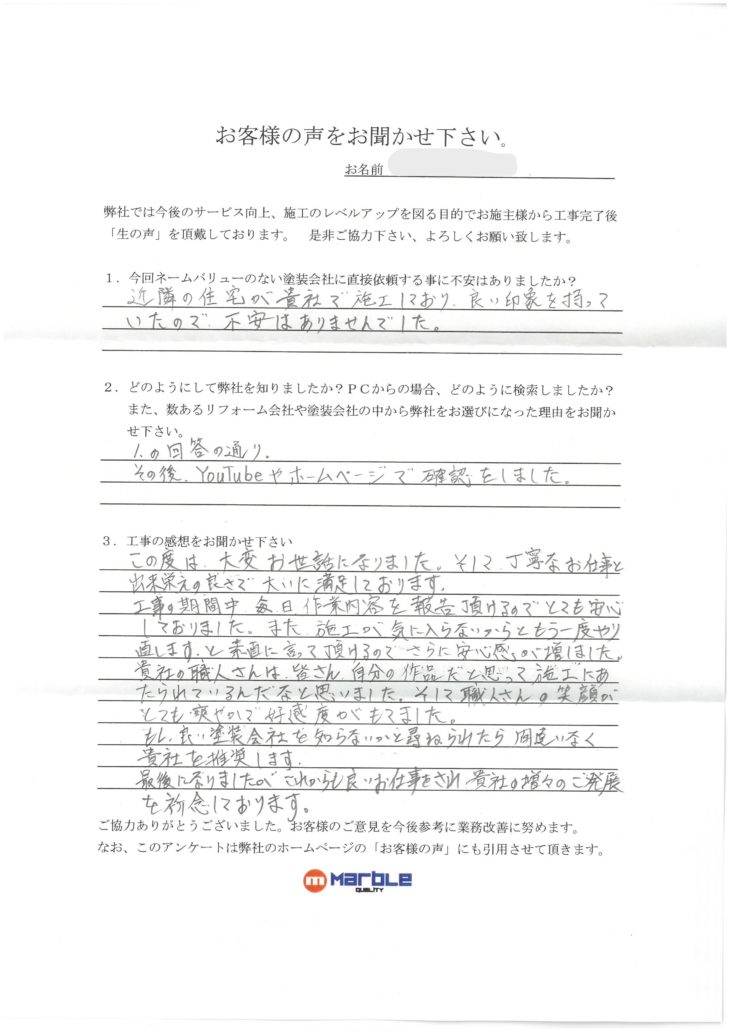 お客様の声をお聞かせ下さい。
お名前
弊社では今後のサービス向上、施工のレベルアップを図る目的でお施主様から工事完了後
「生の声」を頂戴しております。 是非ご協力下さい、よろしくお願い致します。
1．今回ネームバリューのない塗装会社に直接依頼する事に不安はありましたか？
近隣の住宅が貴社で施工しており、良い印象を持って
いたので、不安はありませんでした。
2．どのようにして弊社を知りましたか？ＰＣからの場合、どのように検索しましたか？
また、数あるリフォーム会社や塗装会社の中から弊社をお選びになった理由をお聞か
せ下さい。
1.の回答の通り。
その後、YouTubeやホームページで確認をしました。
3．工事の感想をお聞かせ下さい
この度は、大変お世話になりました。そして、丁寧なお仕事と
出来栄えの良さで大いに満足しております。
工事の期間中、毎日作業内容を報告頂けるのでとても安心
しておりました。また、施工が気に入らないからともう一度やり
直します。と素直に言って頂けるのでさらに安心感が増しました。
貴社の職人さんは、皆さん、自分の作品だと思って施工にあ
たられているんだなと思いました。そして職人さんの笑顔が
とても爽やかで好感度がもてました。
もし、良い塗装会社を知らないかと尋ねられたら間違いなく
貴社を推奨します。
最後になりましたがこれからも良いお仕事をされ貴社の増々のご発展
を祈念しております。
ご協力ありがとうございました。お客様のご意見を今後参考に業務改善に努めます。
なお、このアンケートは弊社のホームページの「お客様の声」にも引用させて頂きます。
m MARBLE
QUALITY